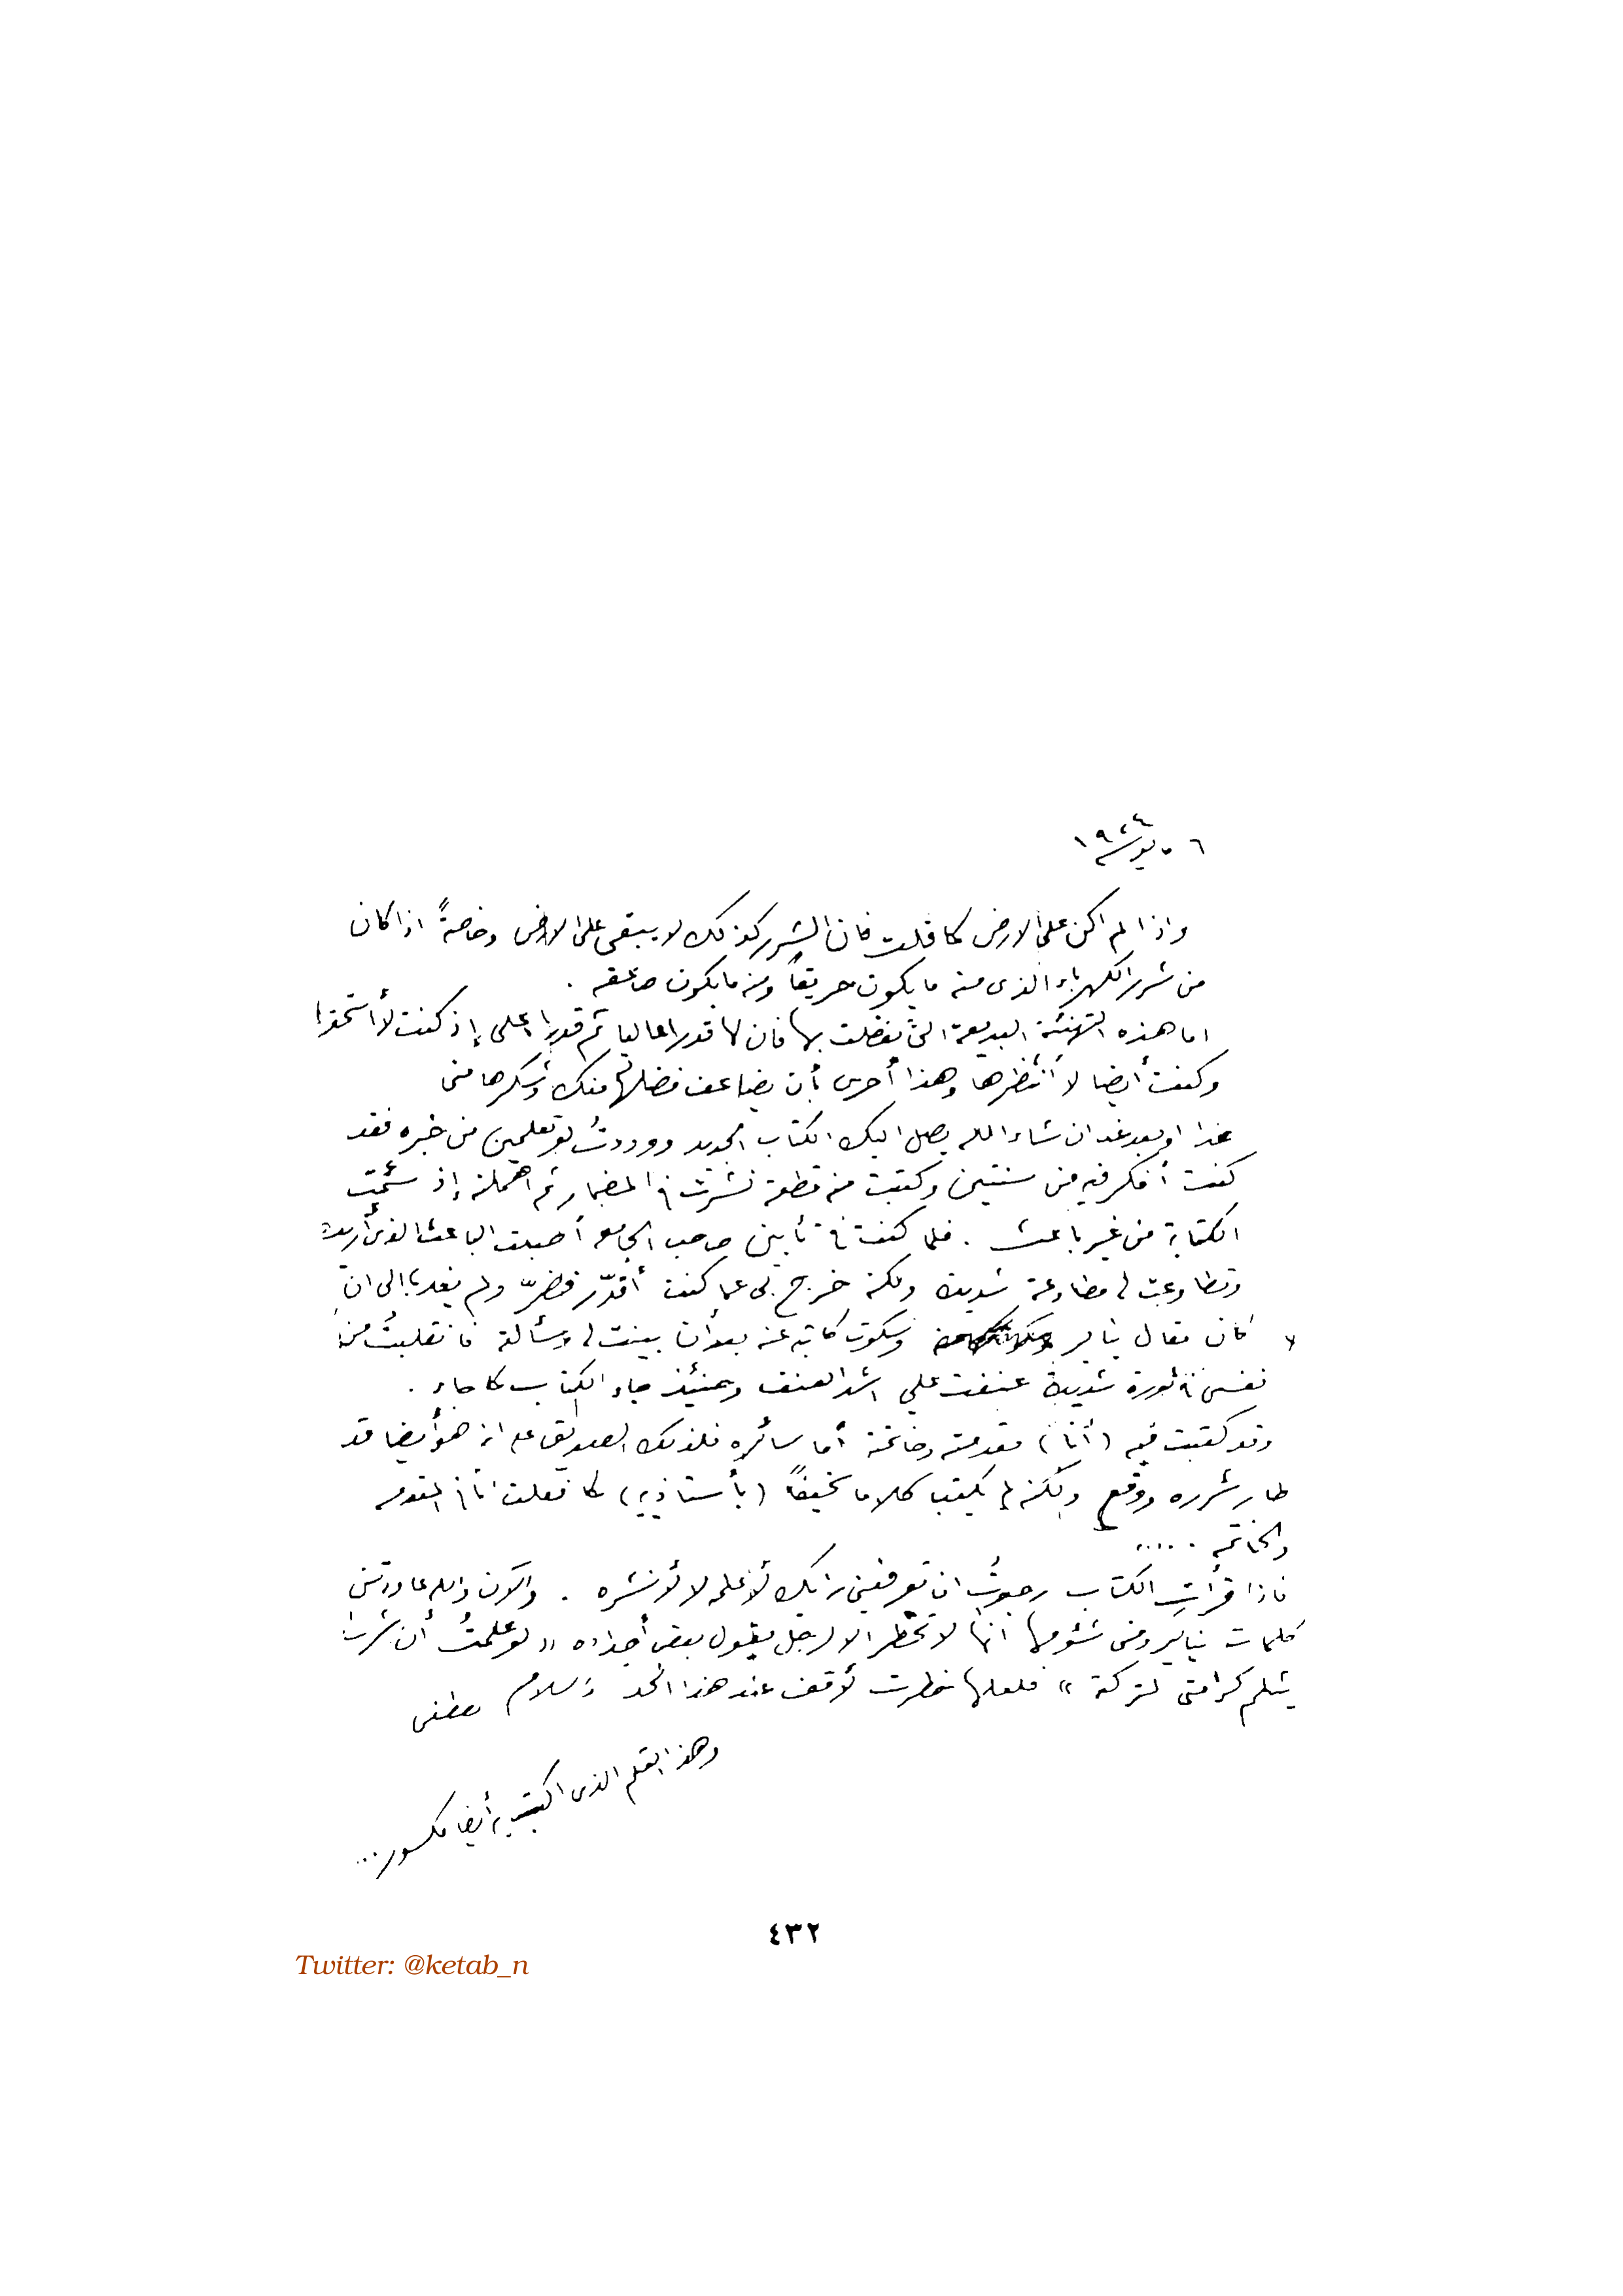 ٦ يونيو ١٩٢٤
واذا لم اكن على الارض كما قلت فان الشرر كذلك لا يبقى على الارض وخاصةً اذا كان
من شرر الكهرباء الذى منه ما يكون حريقاً ومنه ما يكون صاعقه .
اما هذه التهنئة البديعة التى تفضلت بها فان لها قدرا عاليا ثم قدرا اعلى إذ كنت لا أستحقها
وكنت أيضا لا أنتظرها وهذا أحرى بأن يضاعف فضلها منك وشكرها منى
غدا او بعد غد ان شاء الله يصل اليك الكتاب الجديد ووددتُ لو تعلمين من خبره فقد
كنت أفكر فيه من سنتين وكتبت منه قطعة نشرت فى المضمار ثم اهملته إذ سئمت
الكتابة من غير باعث . فلما كنت فى تأبين صاحب الجامعه أصبت الباعث الذى أريده
وتطاوعت له مطاوعة شديدة ولكنه خرج بى عما كنت أقدّر فضرّ ولم يفد الى ان
كان مقال يناير وسكوت كاتبه عنه بعد أن بينت له رسالة فانقلبتُ من
نفسى فى ثورة شديدة عنفت علي اشد العنف وحينئذ جاء الكتاب كما جاء .
وقد كتبت فيه (أنا) مقدمته وخاتمته أما سائره فلذلك الصديق على انه هو أيضا قد
طار شرره ووقع ولكنه لم يكتب كلاما سخيفاً (يا أستاذه) كما فعلت انا فى المقدمه
والخاتمه .....
فاذا قرأتِ الكتاب رجوتُ ان تعرفينى رايك لأعلمه لا لأنشره . والآن والله عاودتنى
كلمات يناير ومن شؤمها انها لا تخطر الا لرجل يقول بعض أجداده « لو علمتُ أن شرب الماء
يثلم كرامتى لتركته » فلعلها خطرت لأقف عند هذا الحد والسلام مصطفى
وهذا القلم الذى اكتب به أيضا مكسور ...
٤٣٢
Twitter: @ketab_n